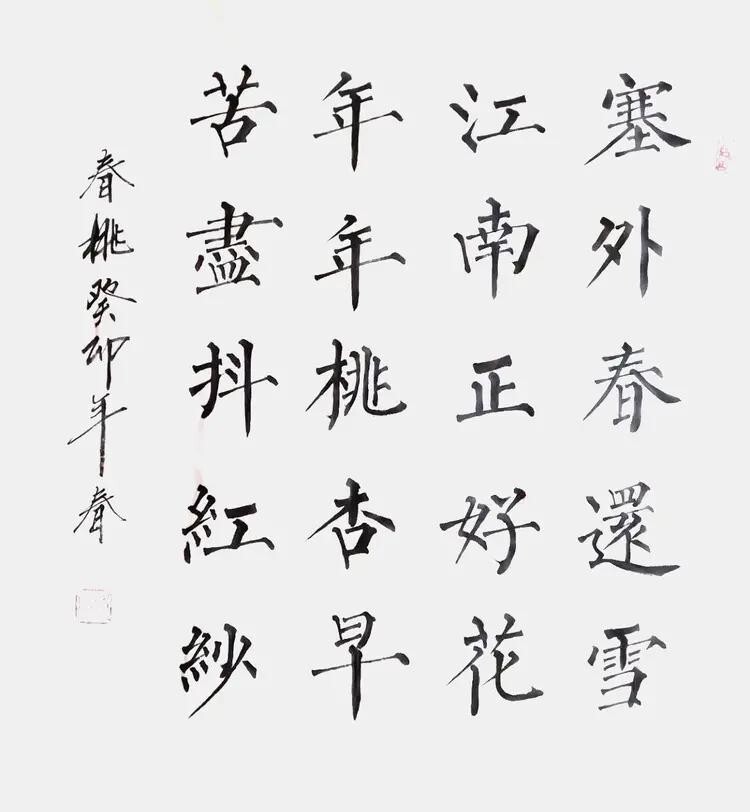 塞外春還雪
江南正好花
年年桃杏早
苦盡抖紅紗
春桃癸卯年春